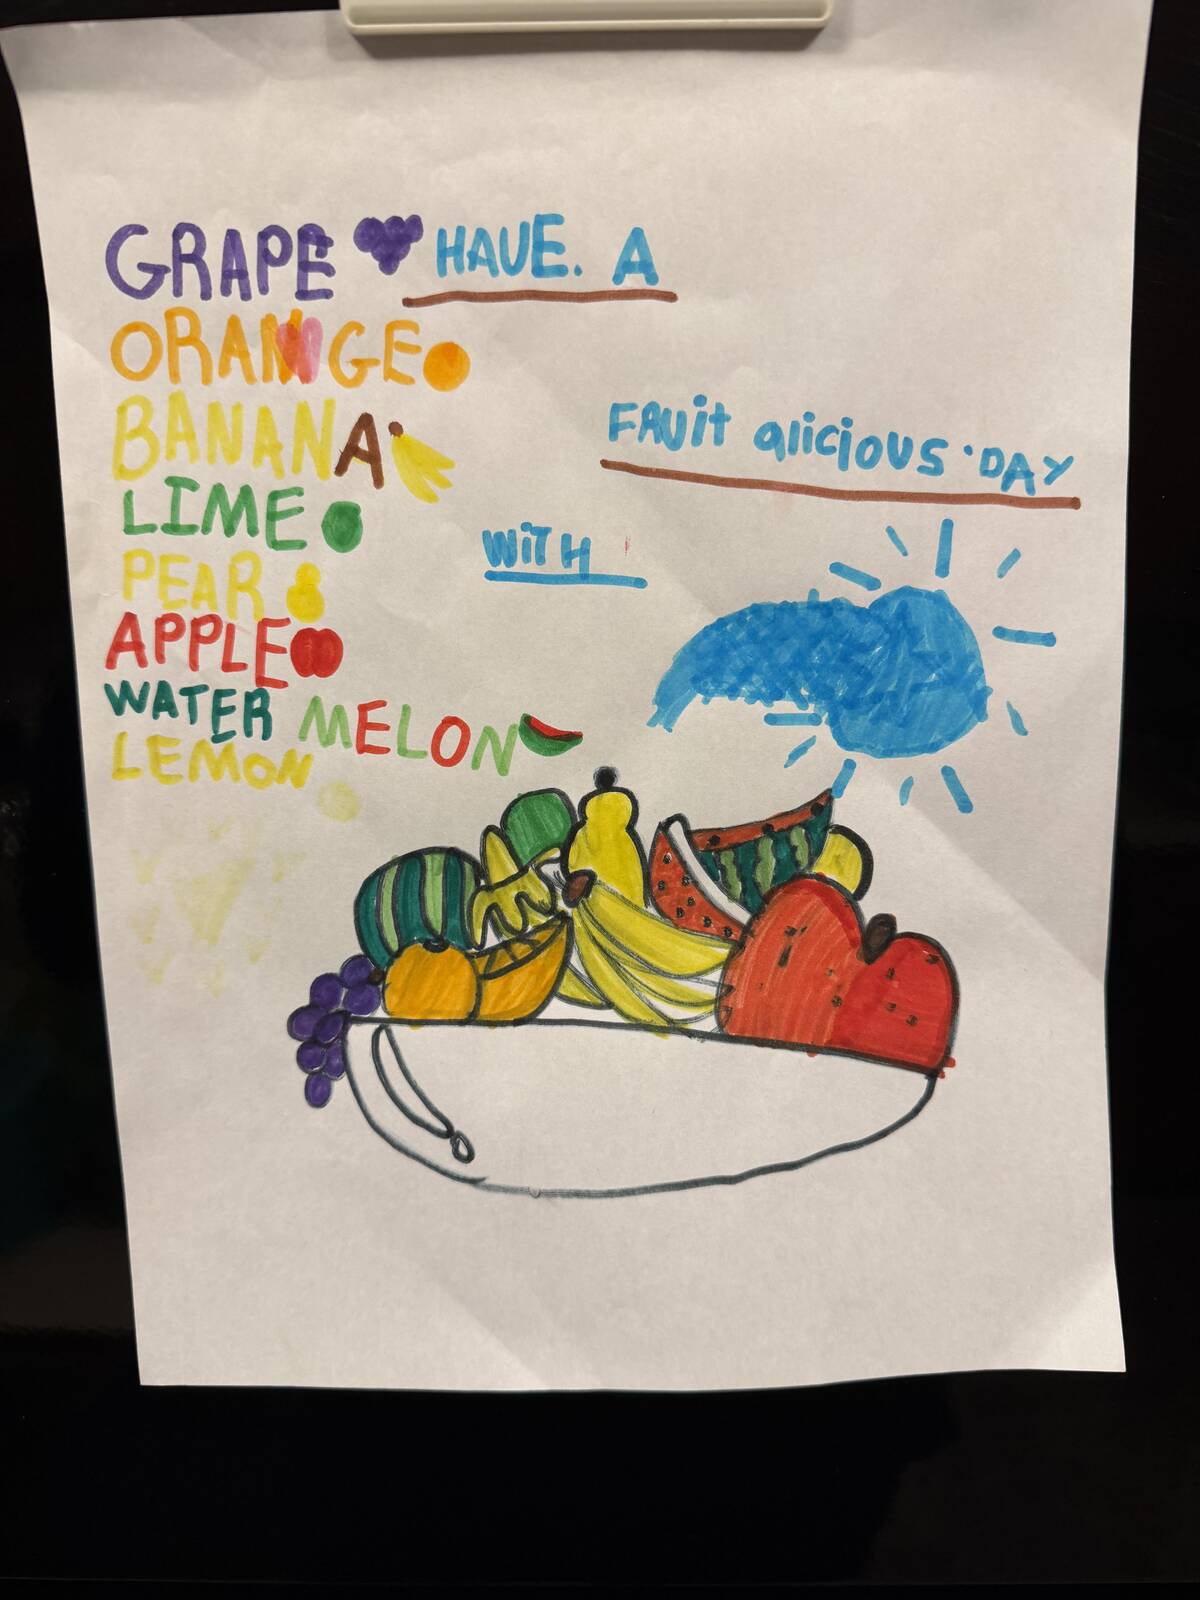 GRAPE
ORANGE
BANANA
LIME
PEAR
APPLE
WATER MELON
LEMON
HAVE. A
FRUit alicious DAY
WiTH